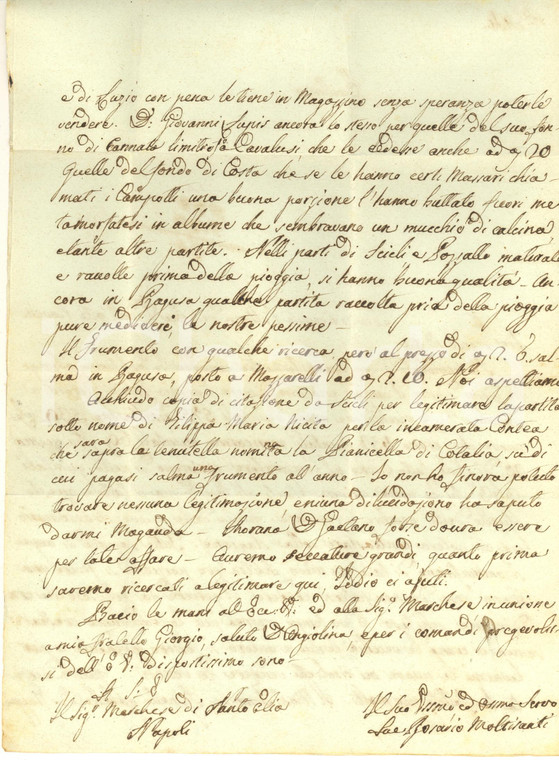 e di Lazio con pena le tiene in Magazzino senza speranza poterle
vendere. D: Giovanni Lupis ancora lo steso per quelle del suo fon-
no di Cannata limitrofo a Cavalusi, che le cedesse anche ad 20
Quelle del fondo di Costa che se le hanno certi Massari chia-
mati i Campolli una buona porzione l'hanno buttato fuori me-
tamorfatesi in albume che sembravano un mucchio di calcina
e tante altre partite. Nelli parti di Scicli e Pozzallo maturate
e raccolte prima della pioggia, si hanno buona qualità - An-
cora in Ragusa qualche partita raccolta pria della pioggia
pure mediocri, le nostre pessime -
Il Frumento con qualche ricerca, però al prezzo di 6. sal-
ma in Ragusa, posto a Mazzarelli ad 16. Noi aspettiamo
Acchiudo copia di citazione da Scicli per legitimare la partita
sotto nome di Filippa Maria Nicita per la incamerata Contea
che sarà sopra la tenutella nomta la Pianicella di Cotalia, su di
cui pagasi salma una frumento all'anno - Io non ho finora potuto
trovare nessuna legitimazione, e niuna dilucidazione ha saputo
darmi Maganda - Thorano D. Gaetano forse dovrà essere
per tale affare - Avremo seccature grandi, quanto prima
saremo ricercati a legitimare qui, Iddio ci ajuti.
Bacio le mani all' Ecc. V. ed alla Sig. Marchese in unione
a mio Fratello Giorgio, saluto D. Angiolina, e per i comandi pregevolis-
si dell' E. V. dispostissimo sono -
A S. E.
Il Sig. Marchese di Santo Elia
Napoli
Il Suo Dmo ed Osmo Servo
Sac. Rosario Moltisanti